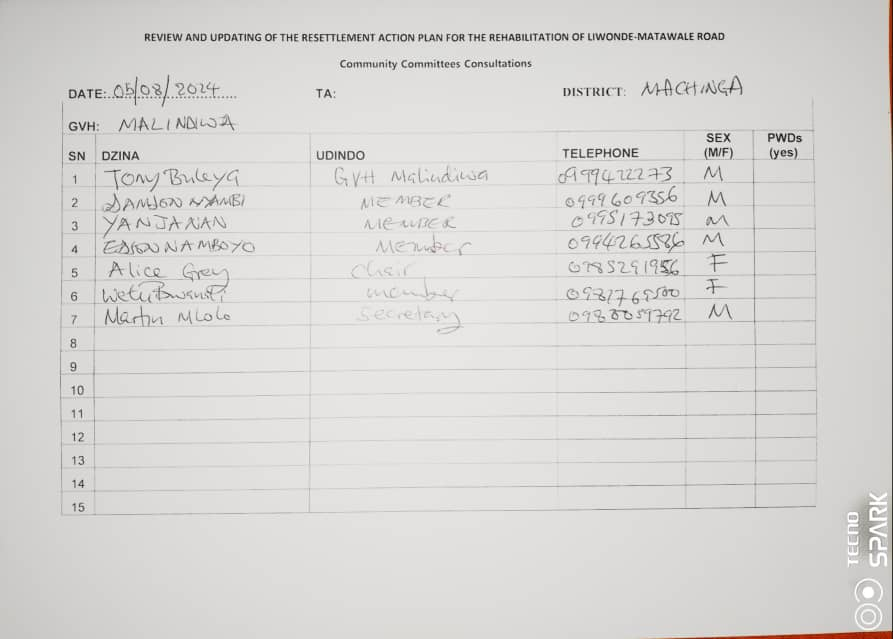 REVIEW AND UPDATING OF THE RESETTLEMENT ACTION PLAN FOR THE REHABILITATION OF LIWONDE-MATAWALE ROAD
Community Committees Consultations
DATE: 05/08/2024 TA: DISTRICT: MACHINGA
GVH: MALINDIWA
SN DZINA UDINDO TELEPHONE SEX (M/F) PWDs (yes)
1 Tony Buleya GVH Malindiwa 0999422273 M
2 NYAMBI MEMBER 0999609356 M
3 YANJANAN MEMBER 0995173095 M
4 EDSON NAMBOYO Member M
5 Alice Grey Chair 0985291956 F
6 member F
7 Martin Mlolo Secretary M
8
9
10
11
12
13
14
15
TECNO
SPARK